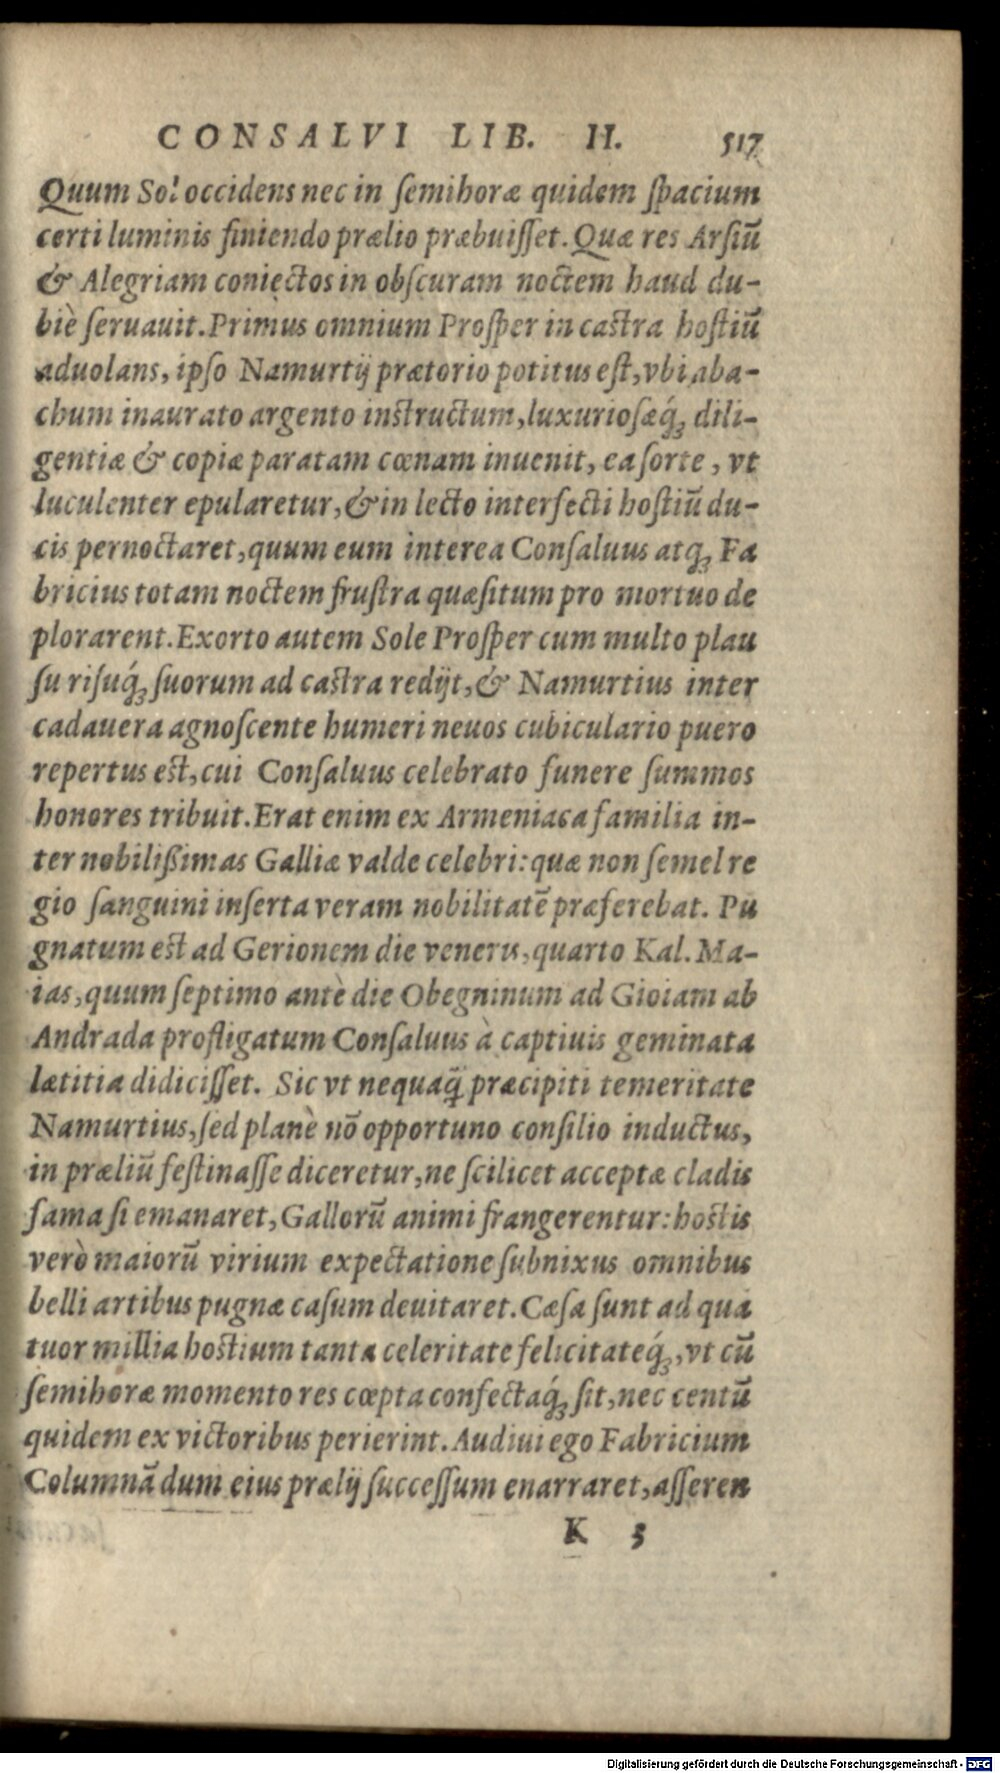 CONSALVI LIB. II. 517
Quum Sol occidens nec in ſemihoræ quidem ſpacium
certi luminis finiendo prælio præbuiſſet. Quæ res Arſiū
& Alegriam coniectos in obſcuram noctem haud du-
biè ſeruauit. Primus omnium Proſper in caſtra hoſtiū
aduolans, ipſo Namurtij prætorio potitus eſt, vbi aba-
chum inaurato argento inſtructum, luxurioſæq́ꝫ dili-
gentiæ & copiæ paratam cœnam inuenit, ea ſorte, vt
luculenter epularetur, & in lecto interfecti hoſtiū du-
cis pernoctaret, quum eum interea Conſaluus atqꝫ Fa
bricius totam noctem fruſtra quæſitum pro mortuo de
plorarent. Exorto autem Sole Proſper cum multo plau
ſu riſuq́ꝫ ſuorum ad caſtra redijt, & Namurtius inter
cadauera agnoſcente humeri neuos cubiculario puero
repertus eſt, cui Conſaluus celebrato funere ſummos
honores tribuit. Erat enim ex Armeniaca familia in-
ter nobilißimas Galliæ valde celebri: quæ non ſemel re
gio ſanguini inſerta veram nobilitatē præferebat. Pu
gnatum eſt ad Gerionem die veneris, quarto Kal. Ma-
ias, quum ſeptimo antè die Obegninum ad Gioiam ab
Andrada profligatum Conſaluus à captiuis geminata
lætitia didiciſſet. Sic vt nequaq̃ præcipiti temeritate
Namurtius, ſed planè nō opportuno conſilio inductus,
in præliū feſtinaſſe diceretur, ne ſcilicet acceptæ cladis
fama ſi emanaret, Gallorū animi frangerentur: hoſtis
verò maiorū virium expectatione ſubnixus omnibus
belli artibus pugnæ caſum deuitaret. Cæſa ſunt ad qua
tuor millia hoſtium tanta celeritate felicitateq́ꝫ, vt cū
ſemihoræ momento res cœpta confectaq́ꝫ ſit, nec centū
quidem ex victoribus perierint. Audiui ego Fabricium
Columnā dum eius prælij ſucceſſum enarraret, aſſeren
K 3
Digitalisierung gefördert durch die Deutsche Forschungsgemeinschaft - DFG